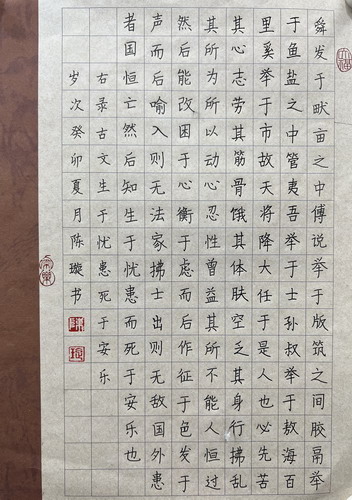 舜发于畎亩之中傅说举于版筑之间胶鬲举
于鱼盐之中管夷吾举于士孙叔举于敖海百
里奚举于市故天将降大任于是人也必先苦
其心志劳其筋骨饿其体肤空乏其身行拂乱
其所为所以动心忍性曾益其所不能人恒过
然后能改困于心衡于虑而后作征于色发于
声而后喻入则无法家拂士出则无敌国外患
者国恒亡然后知生于忧患而死于安乐也
右录古文生于忧患死于安乐
岁次癸卯夏月陈璇书